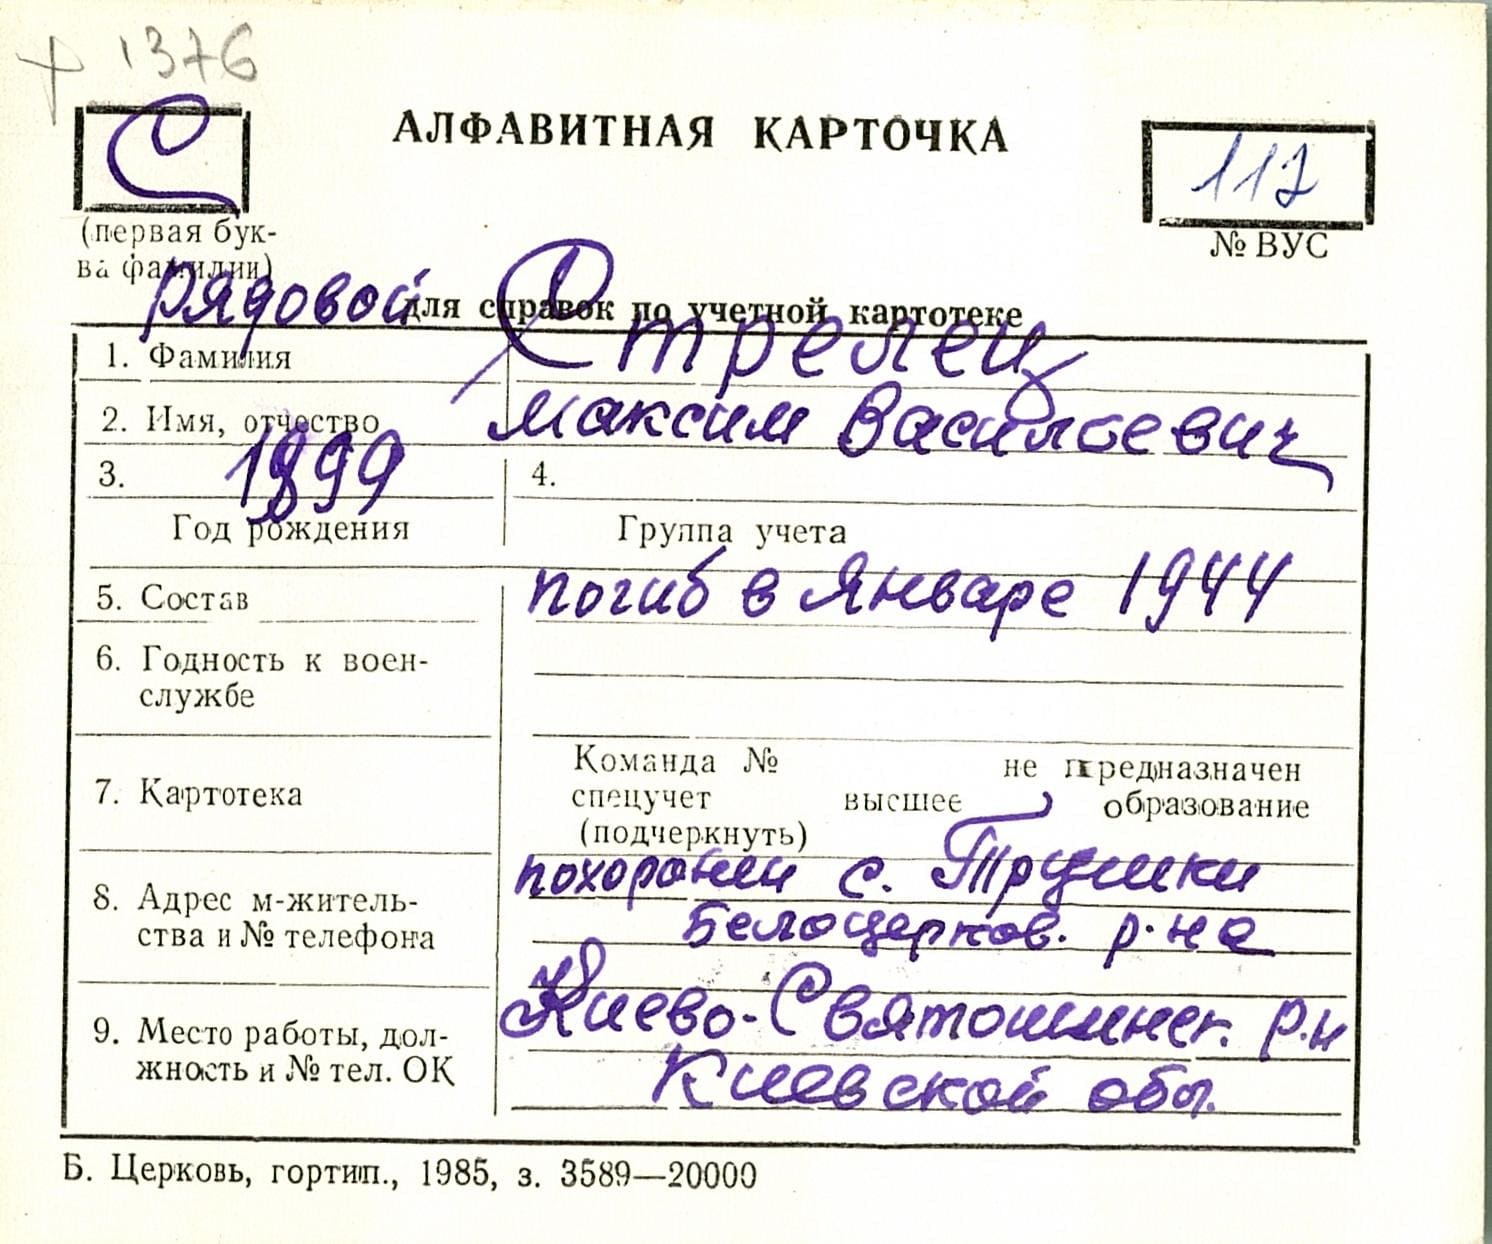 1376
С
АЛФАВИТНАЯ КАРТОЧКА
117
(первая бук-
ва фамилии)
№ ВУС
рядовой
для справок по учетной картотеке
1. Фамилия Стрелец
2. Имя, отчество Максим Васильевич
3. 1899 4.
Год рождения Группа учета
5. Состав погиб в Январе 1944
6. Годность к воен-
службе
7. Картотека
Команда № не предназначен
спецучет высшее образование
(подчеркнуть)
8. Адрес м-житель-
ства и № телефона
похоронен с. Трушки
Белоцерков. р-на
9. Место работы, дол-
жность и № тел. ОК
Киево-Святошинск. р-н
Киевской обл.
Б. Церковь, гортип., 1985, з. 3589—20000